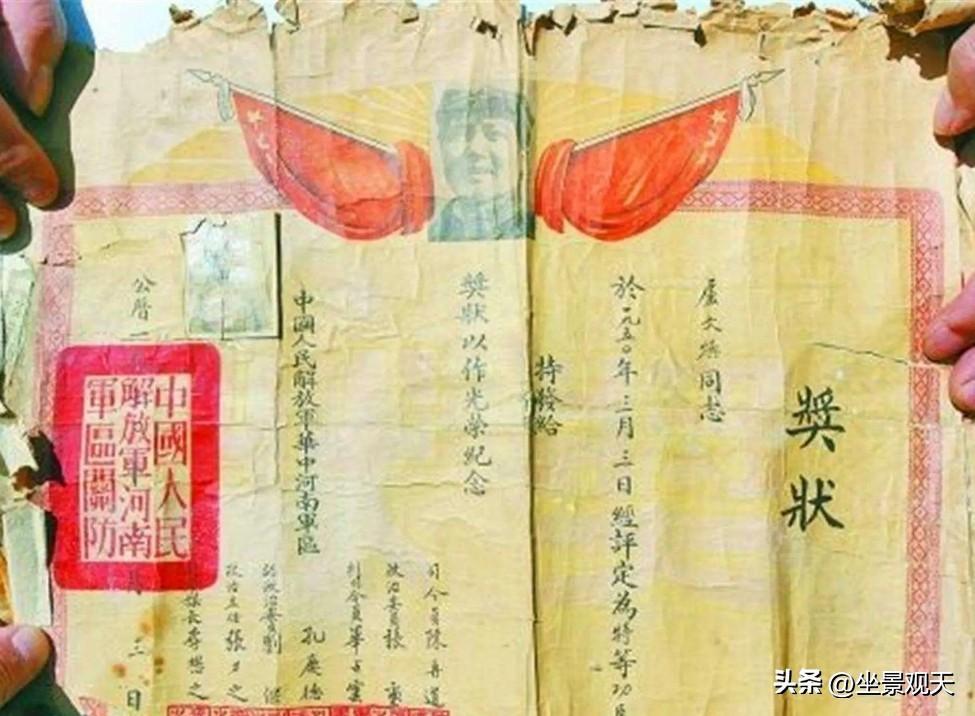 獎狀
文 同志
於一九五〇年三月三日經評定為特等功
特發給
獎狀以作光榮紀念
中國人民解放軍華中河南軍區
司令員陳再道
政治委員張
副司令員畢占雲
孔慶德
副政治委員劉
政治主任張力之
長李懋之
公曆一
月三日
中國人民
解放軍河南
軍區關防
头条 @坐景观天